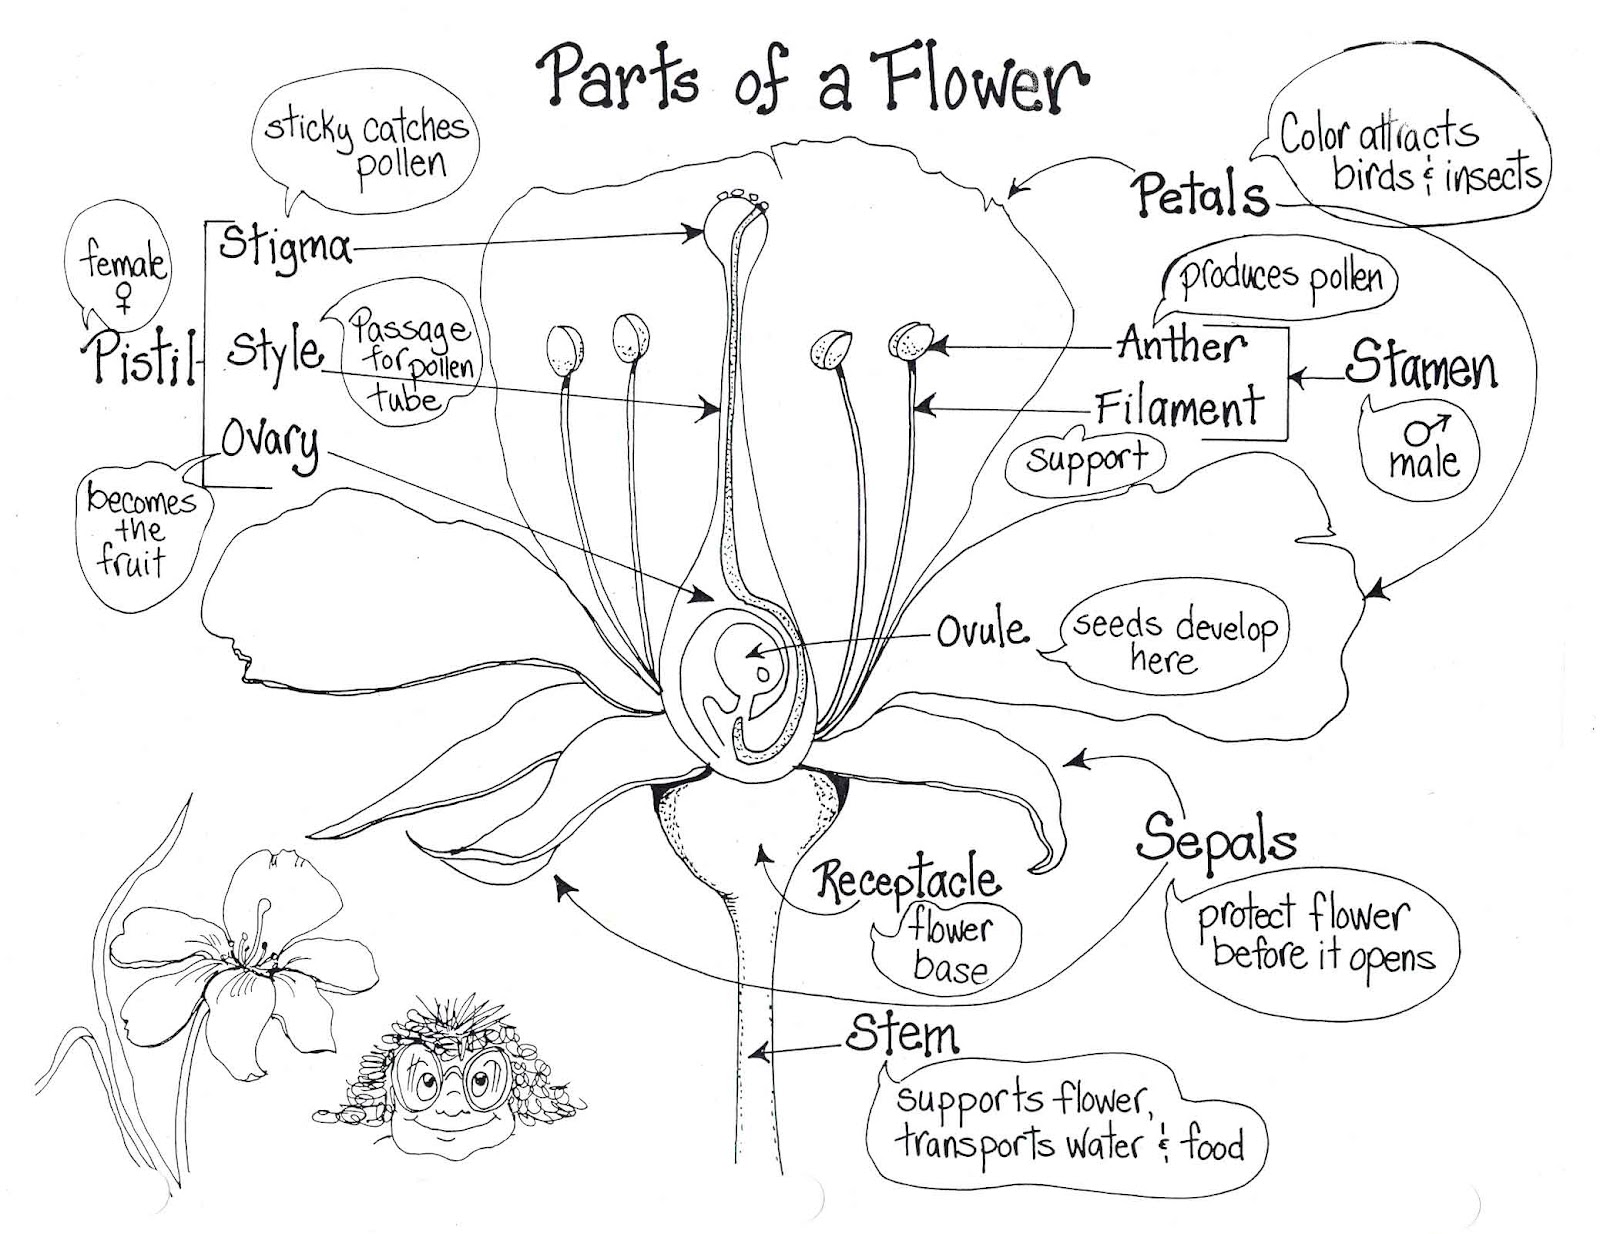 Parts of a Flower
sticky catches
pollen
Color attracts
birds & insects
Petals
female
♀
Pistil
Stigma
Style
Passage
for pollen
tube
Ovary
becomes
the
fruit
produces pollen
Anther
Filament
support
Stamen
♂
male
Ovule
seeds develop
here
Sepals
protect flower
before it opens
Receptacle
flower
base
Stem
supports flower,
transports water & food